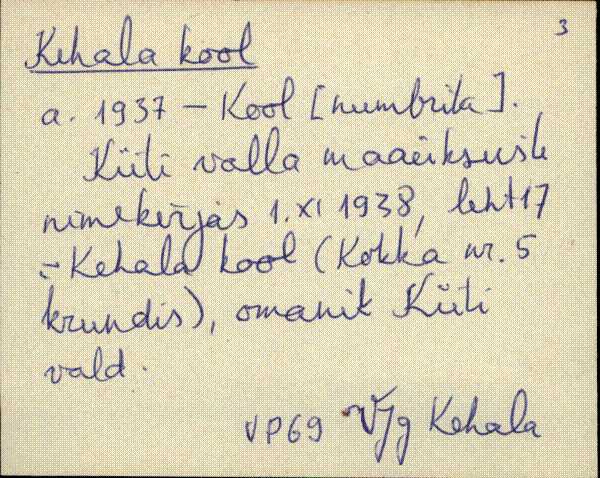 3
Kehala kool
a. 1937 – Kool [numbrita].
Küti valla maaüksuste
nimekirjas 1.XI 1938, leht 17
– Kehala kool (Kokka nr. 5
krundis), omanik Küti
vald.
VP69 V/Jg Kehala